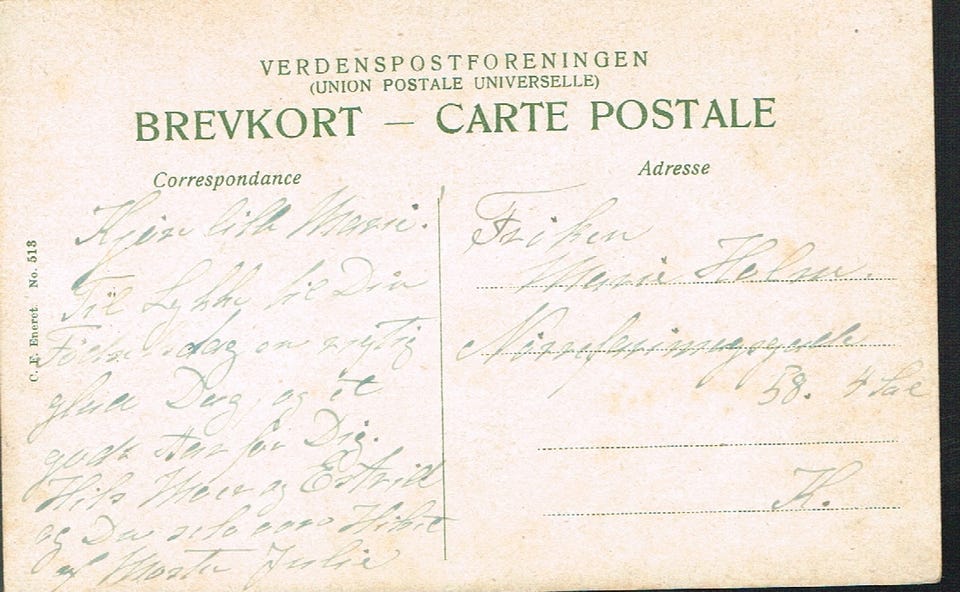 VERDENSPOSTFORENINGEN
(UNION POSTALE UNIVERSELLE)
BREVKORT — CARTE POSTALE
Correspondance
Adresse
C. F. Eneret No. 513
Kjære lille Marie.
Til Lykke til Din
Fødselsdag en rigtig
glad Dag, og et
godt Aar for Dig.
Hils Moer og Estrid
og Du selv Hilset
af Moster Julie
Frøken
Marie Holm.
Nørrefarimagsgade
58. 4 Sal
K.